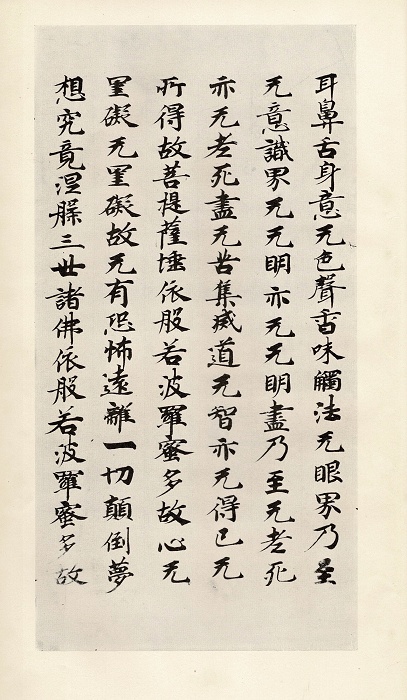 耳鼻舌身意无色聲香味觸法无眼界乃至
无意識界无无明亦无无明盡乃至无老死
亦无老死盡无苦集滅道无智亦无得已无
所得故菩提薩埵依般若波羅蜜多故心无
罣礙无罣礙故无有恐怖遠離一切顛倒夢
想究竟涅槃三世諸佛依般若波羅蜜多故